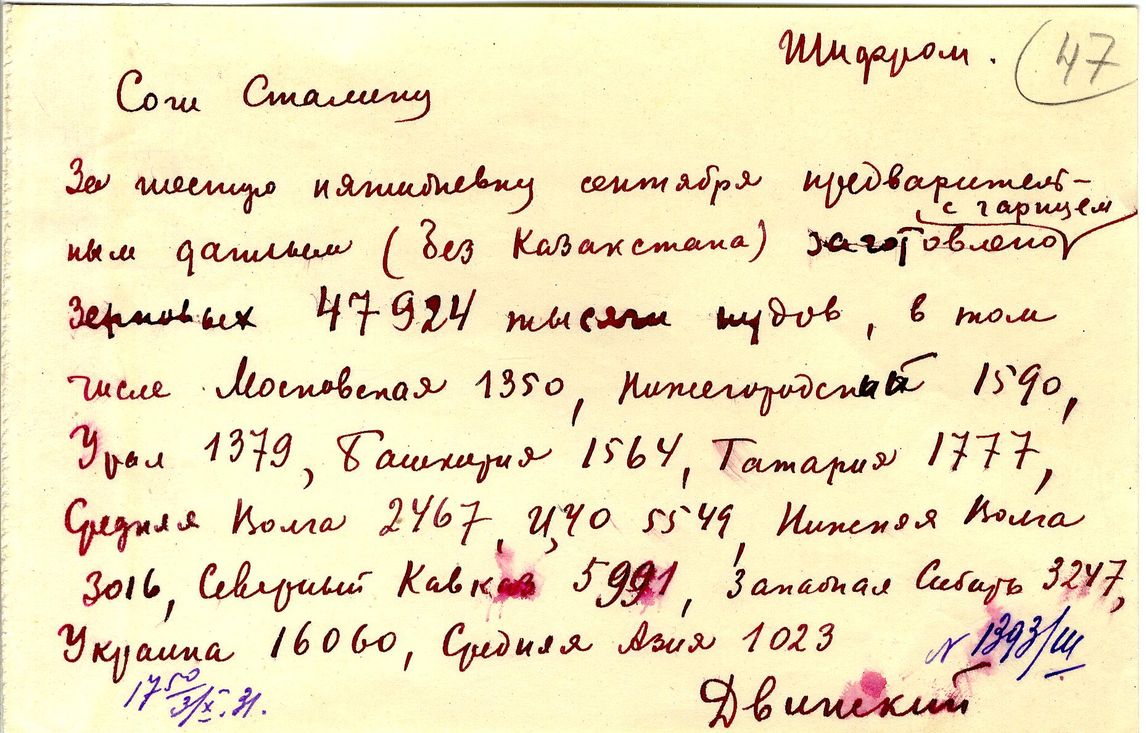 Шифром. 47
Сочи Сталину
За шестую пятидневку сентября предваритель-
с гарнцем
ным данным (без Казахстана) заготовлено
зерновых 47924 тысячи пудов, в том
числе Московская 1350, Нижегородский 1590,
Урал 1379, Башкирия 1564, Татария 1777,
Средняя Волга 2467, ЦЧО 5549, Нижняя Волга
3016, Северный Кавказ 5991, Западная Сибирь 3247,
Украина 16060, Средняя Азия 1023
N 1393/ш
17 50
3/X.31.
Двинский